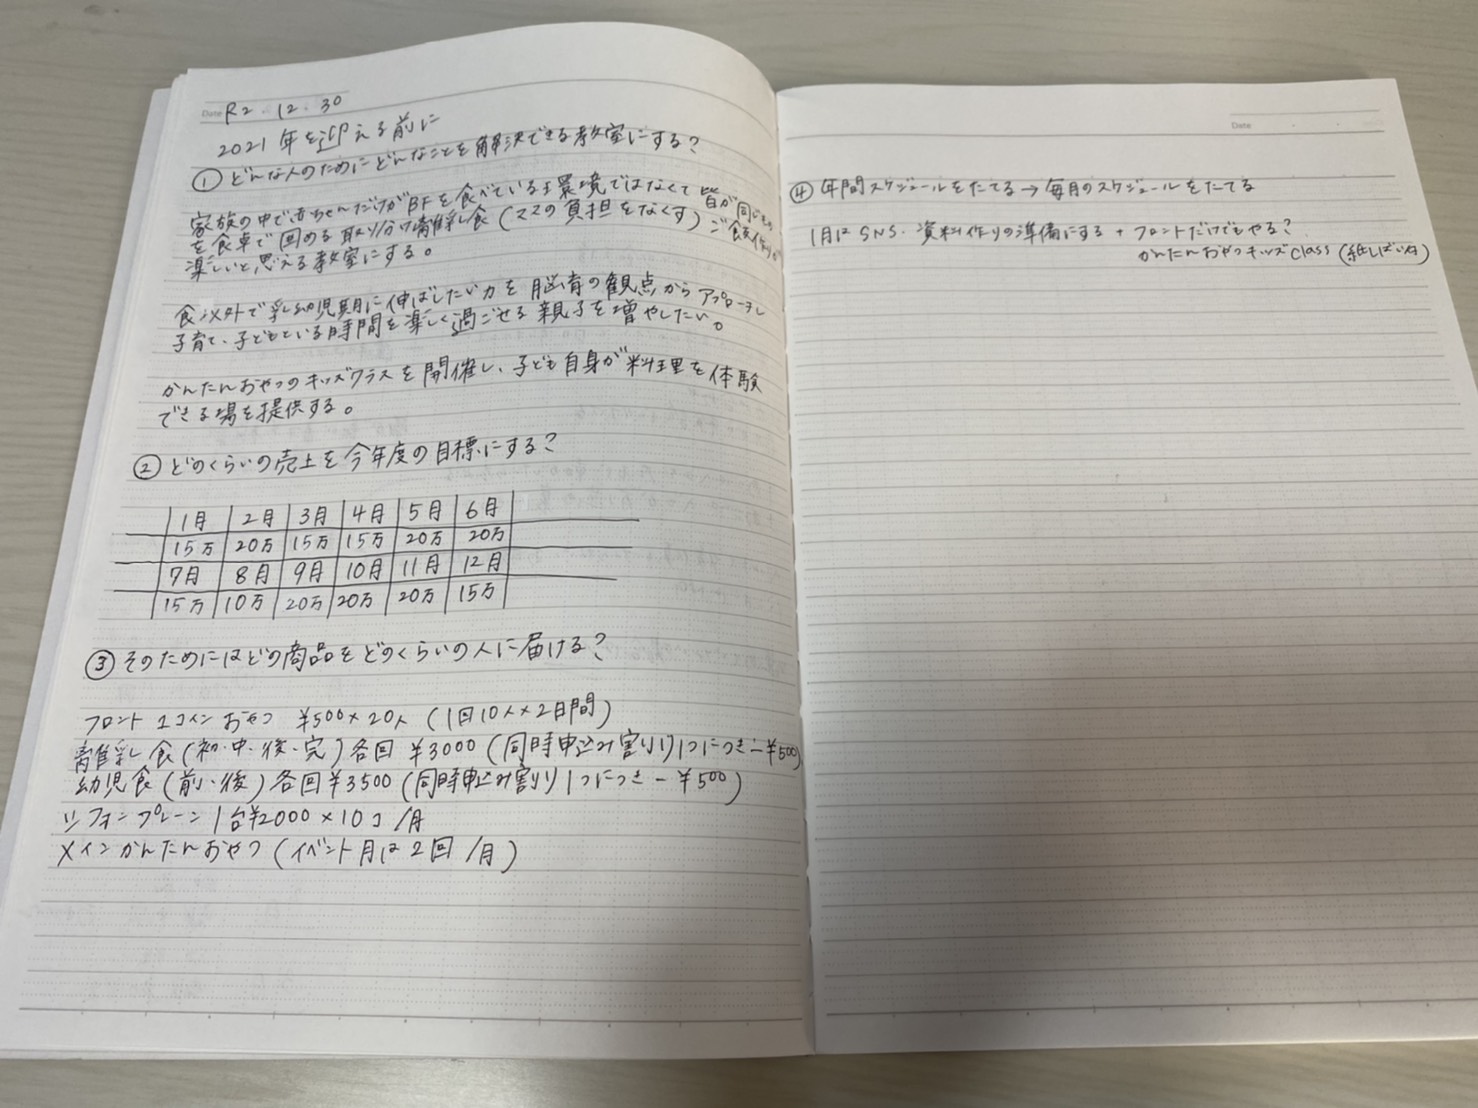 Date R2・12・30
2021年を迎える前に
① どんな人のためにどんなことを解決できる教室にする?
家族の中で赤ちゃんだけがBFを食べている環境ではなくて皆が同じもの
を食卓で囲める取り分け離乳食(ママの負担をなくす)ご飯作りが
楽しいと思える教室にする。
食以外で乳幼児期に伸ばしたい力を脳育の観点からアプローチし
子育て、子どもといる時間を楽しく過ごせる親子を増やしたい。
かんたんおやつのキッズクラスを開催し、子ども自身が料理を体験
できる場を提供する。
② どのくらいの売上を今年度の目標にする?
1月 2月 3月 4月 5月 6月
15万 20万 15万 15万 20万 20万
7月 8月 9月 10月 11月 12月
15万 10万 20万 20万 20万 15万
③ そのためにはどの商品をどのくらいの人に届ける?
フロント 1コインおやつ ¥500×20人 (1回10人×2日間)
離乳食(初・中・後・完)各回 ¥3000(同時申込み割り1つにつき-¥500)
幼児食(前・後)各回¥3500(同時申込み割り1つにつき-¥500)
シフォンプレーン1台¥2000×10コ/月
メインかんたんおやつ(イベント月は2回/月)
Date
④ 年間スケジュールをたてる→毎月のスケジュールをたてる
1月はSNS・資料作りの準備にする+フロントだけでもやる?
かんたんおやつキッズclass(紙しばい付)